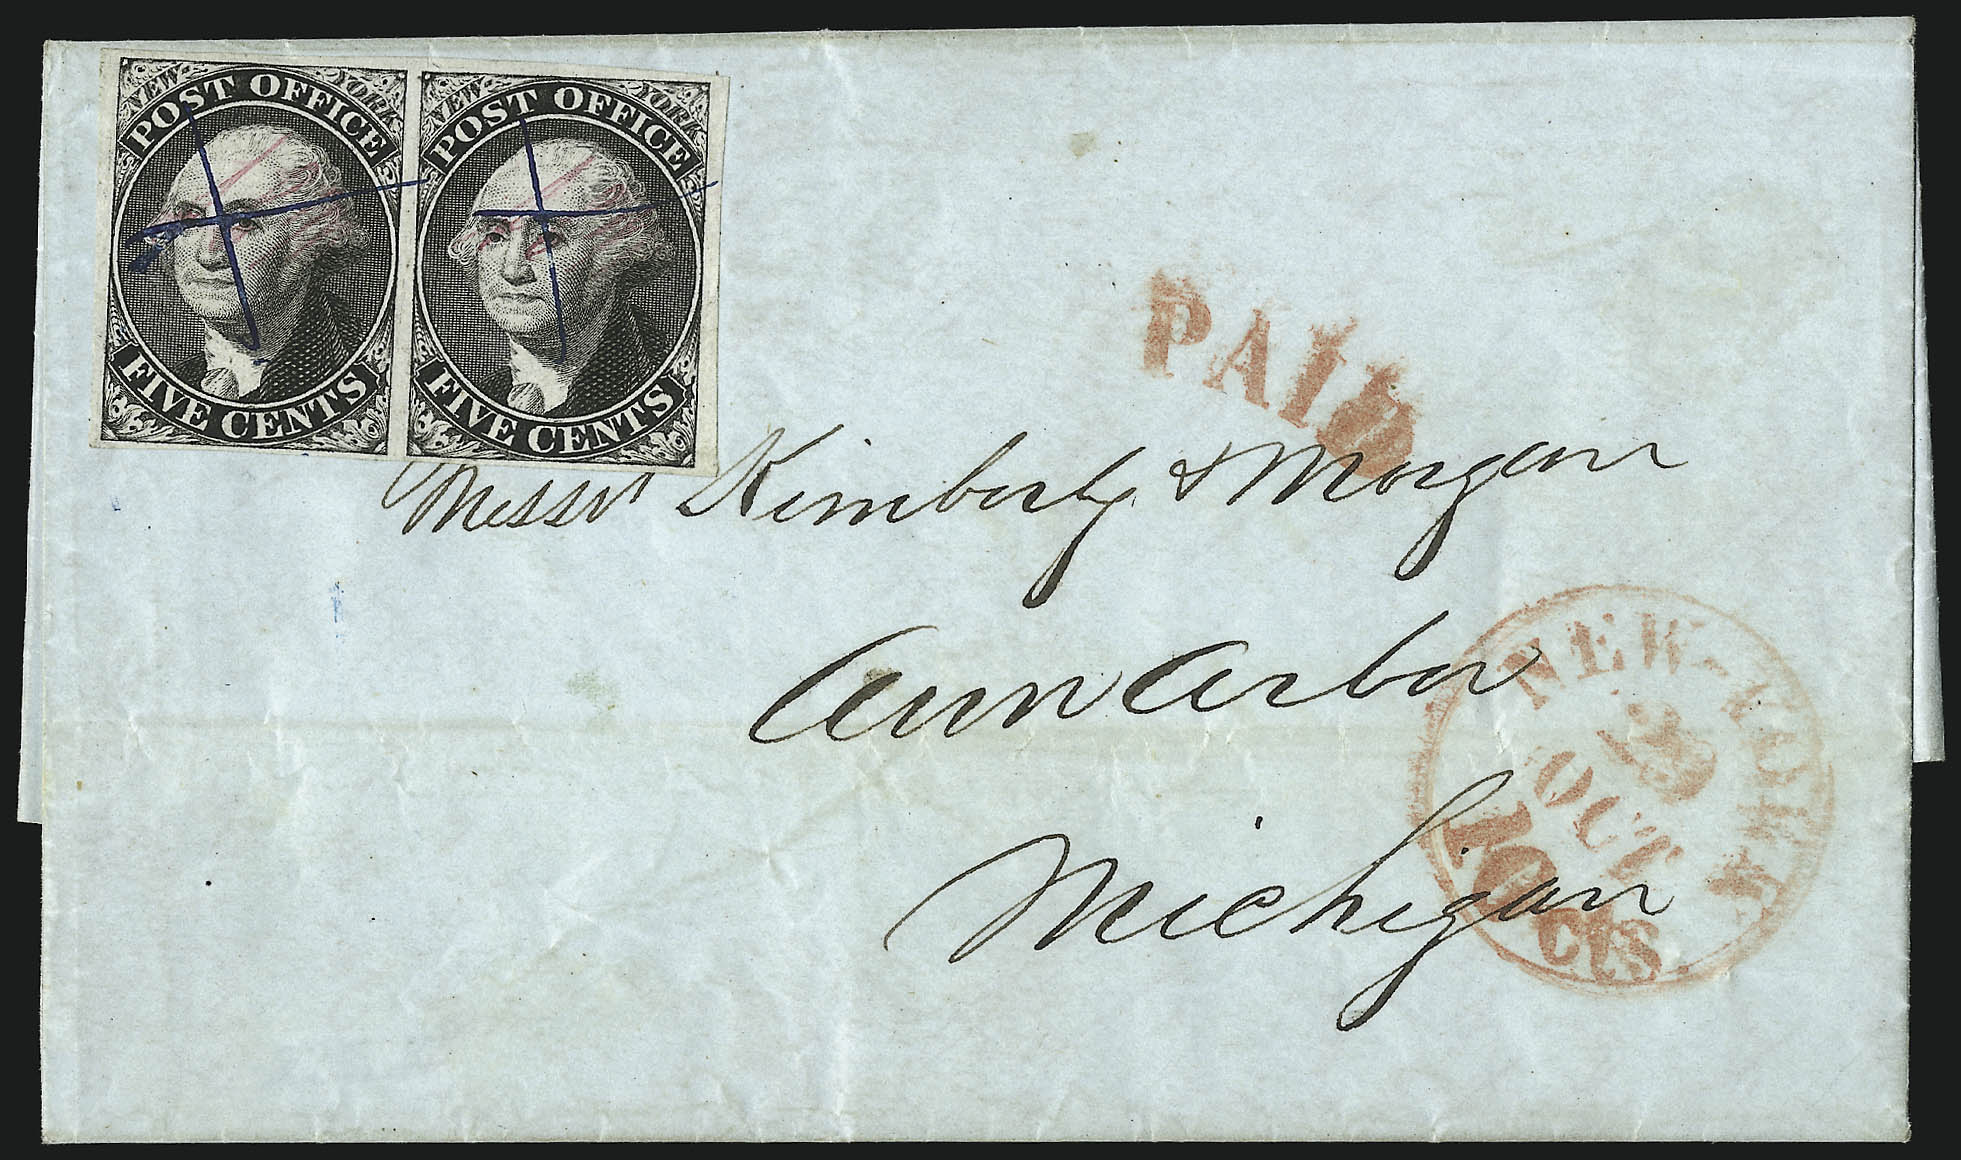 NEW-YORK
POST OFFICE
FIVE CENTS
NEW-YORK
POST OFFICE
FIVE CENTS
PAID
Messrs Kimberly & Morgan
Ann Arbor
Michigan
NEW-YORK
OCT
10 cts.